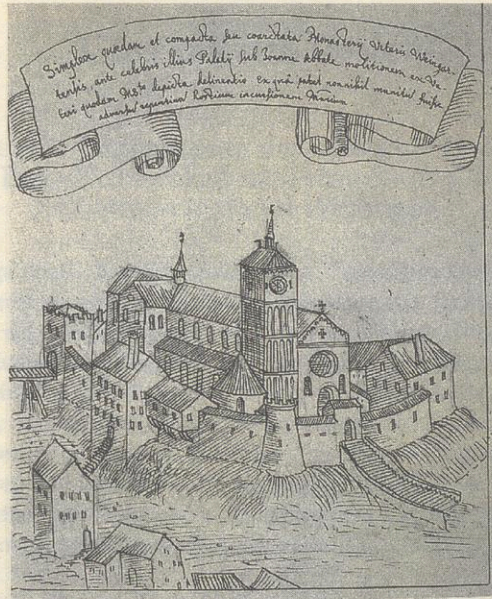 Simplex quaedam et compacta seu coarctata Monasterij Veteris Weingar-
tensis, ante celebris illius Palatij sub Joanne Abbate molitionem ex Ve
teri quodam depicta delineatio Ex quâ patet nonnihil munitū fuisse
adversus repentinam hostium incursionem